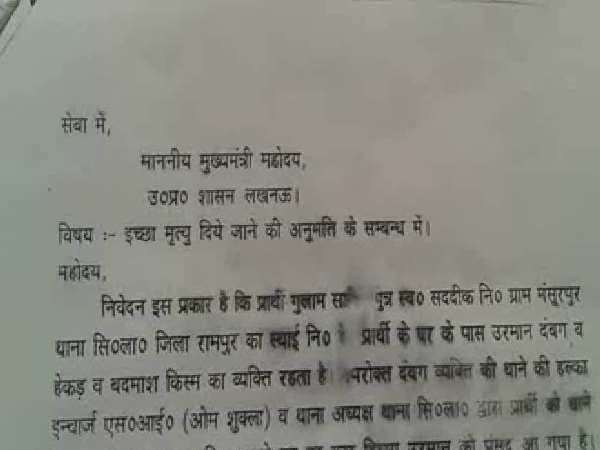 सेवा में,
माननीय मुख्यमंत्री महोदय,
उ०प्र० शासन लखनऊ।
विषय :- इच्छा मृत्यु दिये जाने की अनुमति के सम्बन्ध में।
महोदय,
निवेदन इस प्रकार है कि प्रार्थी गुलाम पुत्र स्व० सददीक नि० ग्राम मंसूरपुर
थाना सि०ला० जिला रामपुर का स्थाई नि० है प्रार्थी के घर के पास उरमान दंबग व
हेकड़ व बदमाश किस्म का व्यक्ति रहता है। उपरोक्त दंबग व्यक्ति की थाने की हल्का
इन्चार्ज एस०आई० (ओम शुक्ला) व थाना अध्यक्ष थाना सि०ला० द्वारा प्रार्थी को थाने
उरमान को पंसद आ गया है।